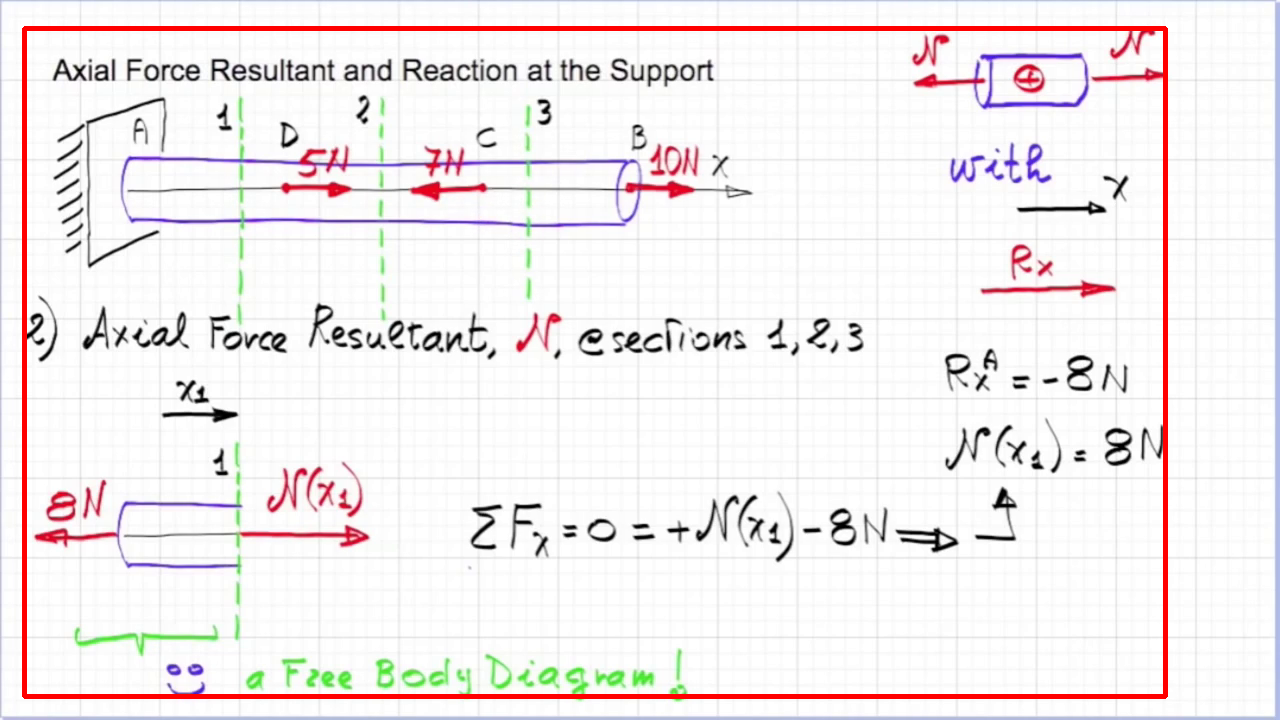 Axial Force Resultant and Reaction at the Support
N N
+
A 1 D 2 C 3 B
5N 7N 10N x
with
x
Rx
2) Axial Force Resultant, N, @sections 1,2,3
RxA = -8N
x1
N(x1) = 8N
1
8N N(x1)
ΣFx = 0 = +N(x1) - 8N ⇒
a Free Body Diagram!